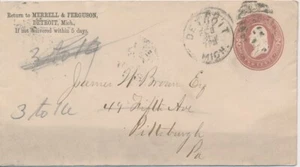 Return to MERRELL & FERGUSON,
DETROIT, Mich.,
If not delivered within 5 days.
DETROIT
MICH.
James W Brown Esq
3 to 10
49 Fifth Ave
Pittsburgh
Pa